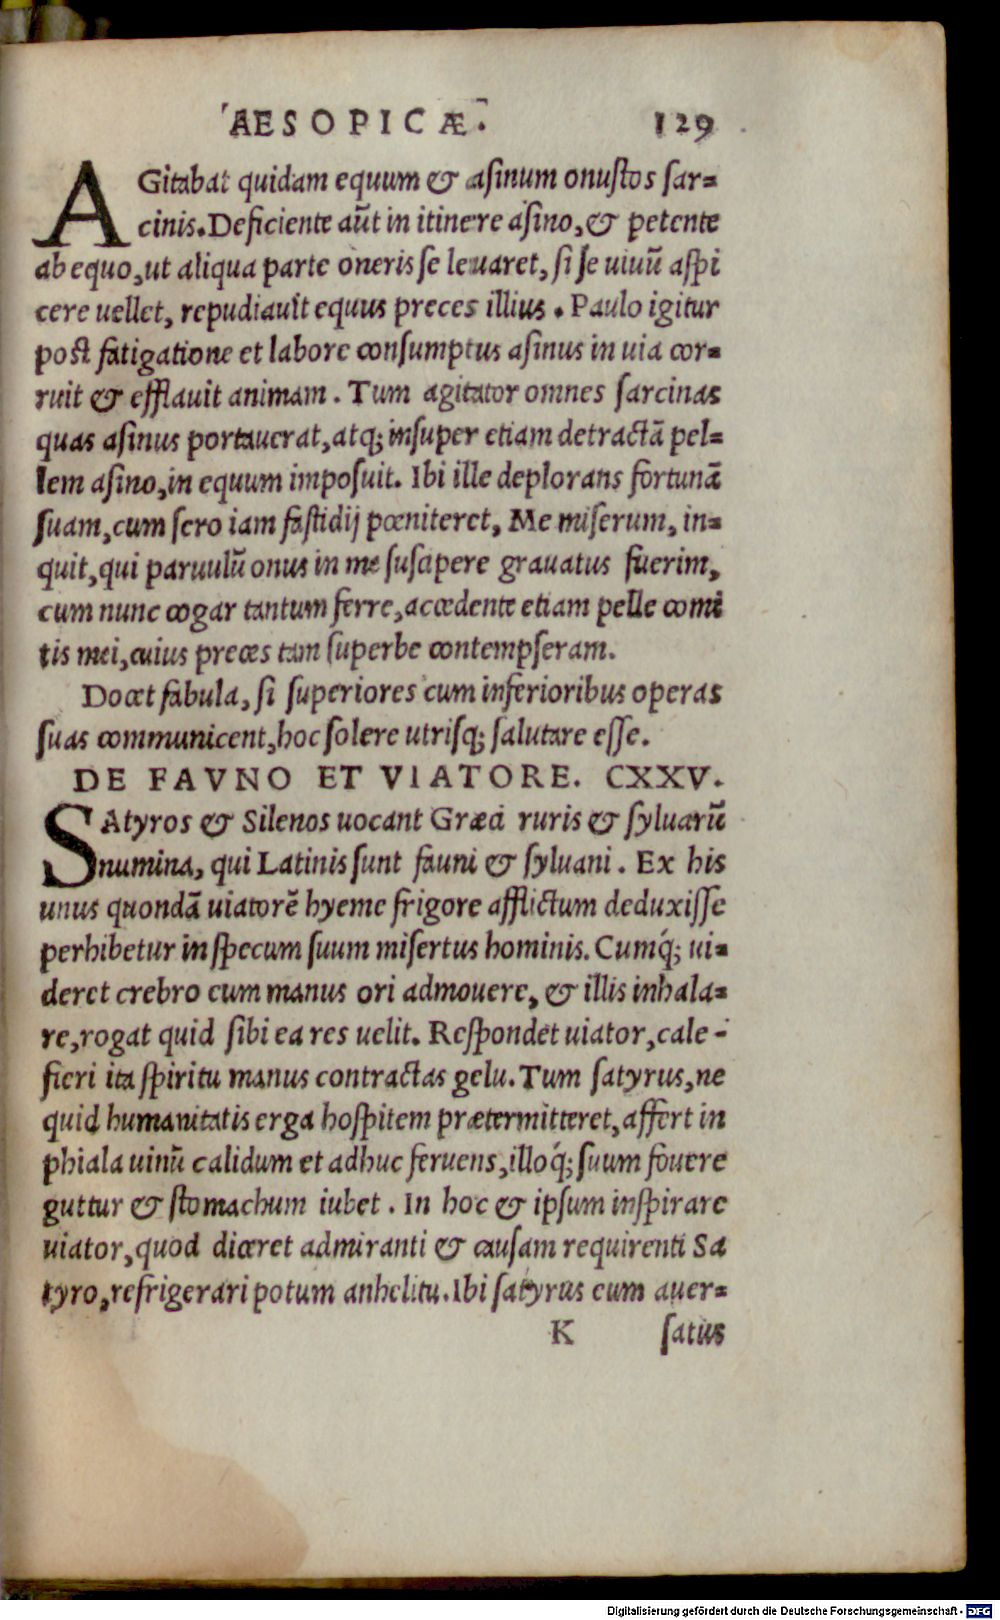 AESOPICÆ. 129
AGitabat quidam equum & asinum onustos sar=
cinis. Deficiente aūt in itinere asino, & petente
ab equo, ut aliqua parte oneris se leuaret, si se uiuū aspi
cere uellet, repudiauit equus preces illius. Paulo igitur
post fatigatione et labore consumptus asinus in uia cor=
ruit & efflauit animam. Tum agitator omnes sarcinas
quas asinus portauerat, atq; insuper etiam detractā pel=
lem asino, in equum imposuit. Ibi ille deplorans fortunā
suam, cum sero iam fastidij pœniteret, Me miserum, in=
quit, qui paruulū onus in me suscipere grauatus fuerim,
cum nunc cogar tantum ferre, accedente etiam pelle comi
tis mei, cuius preces tam superbe contempseram.
Docet fabula, si superiores cum inferioribus operas
suas communicent, hoc solere utrisq; salutare esse.
DE FAVNO ET VIATORE. CXXV.
SAtyros & Silenos uocant Græci ruris & syluarū
numina, qui Latinis sunt fauni & syluani. Ex his
unus quondā uiatorē hyeme frigore afflictum deduxisse
perhibetur in specum suum misertus hominis. Cumq́; ui=
deret crebro eum manus ori admouere, & illis inhala=
re, rogat quid sibi ea res uelit. Respondet uiator, cale-
fieri ita spiritu manus contractas gelu. Tum satyrus, ne
quid humanitatis erga hospitem prætermitteret, affert in
phiala uinū calidum et adhuc feruens, illoq́; suum fouere
guttur & stomachum iubet. In hoc & ipsum inspirare
uiator, quod diceret admiranti & causam requirenti Sa
tyro, refrigerari potum anhelitu. Ibi satyrus eum auer=
K satus
Digitalisierung gefördert durch die Deutsche Forschungsgemeinschaft - DFG